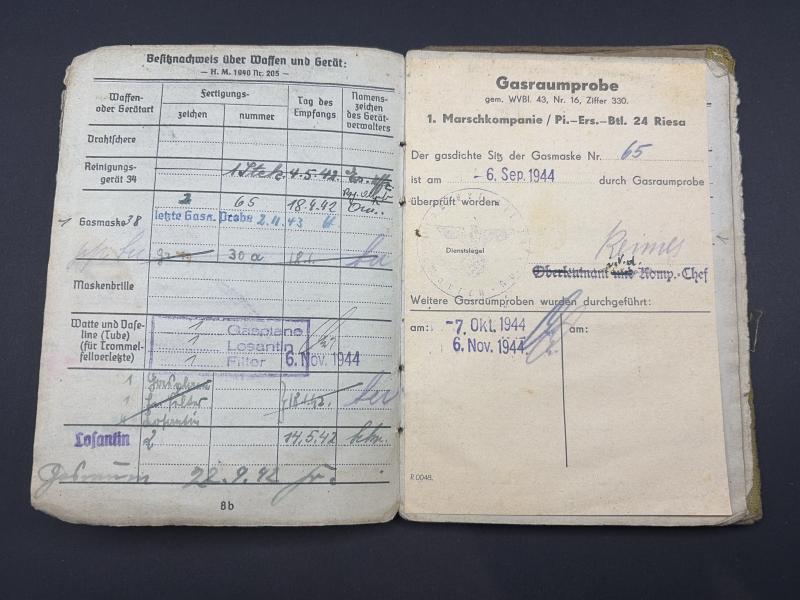 Besitznachweis über Waffen und Gerät:
— H. M. 1940 Nr. 205 —
Waffen- oder Gerätart
Fertigungs-
zeichen
nummer
Tag des Empfangs
Namens-zeichen des Gerät-verwalters
Drahtschere
Reinigungs-gerät 34
1 Stck. 4.5.42.
2 65 18.4.42
1 Gasmaske 38
letzte Gasn. Probe 2.11.43
30a
Maskenbrille
Watte und Vase-line (Tube) (für Trommel-fellverletzte)
1 Gasplane
1 Losantin
1 Filter 6. Nov. 1944
1 Gasplane
1 Filter
Losantin
Losantin 2 14.5.42
Gasraum 22.9.42
8b
Gasraumprobe
gem. WVBl. 43, Nr. 16, Ziffer 330.
1. Marschkompanie / Pi.-Ers.-Btl. 24 Riesa
Der gasdichte Sitz der Gasmaske Nr. 65
ist am - 6. Sep. 1944 durch Gasraumprobe
überprüft worden.
Dienstsiegel
Oberleutnant und Komp.-Chef
Weitere Gasraumproben wurden durchgeführt:
am: - 7. Okt. 1944 am:
6. Nov. 1944
R 0048.